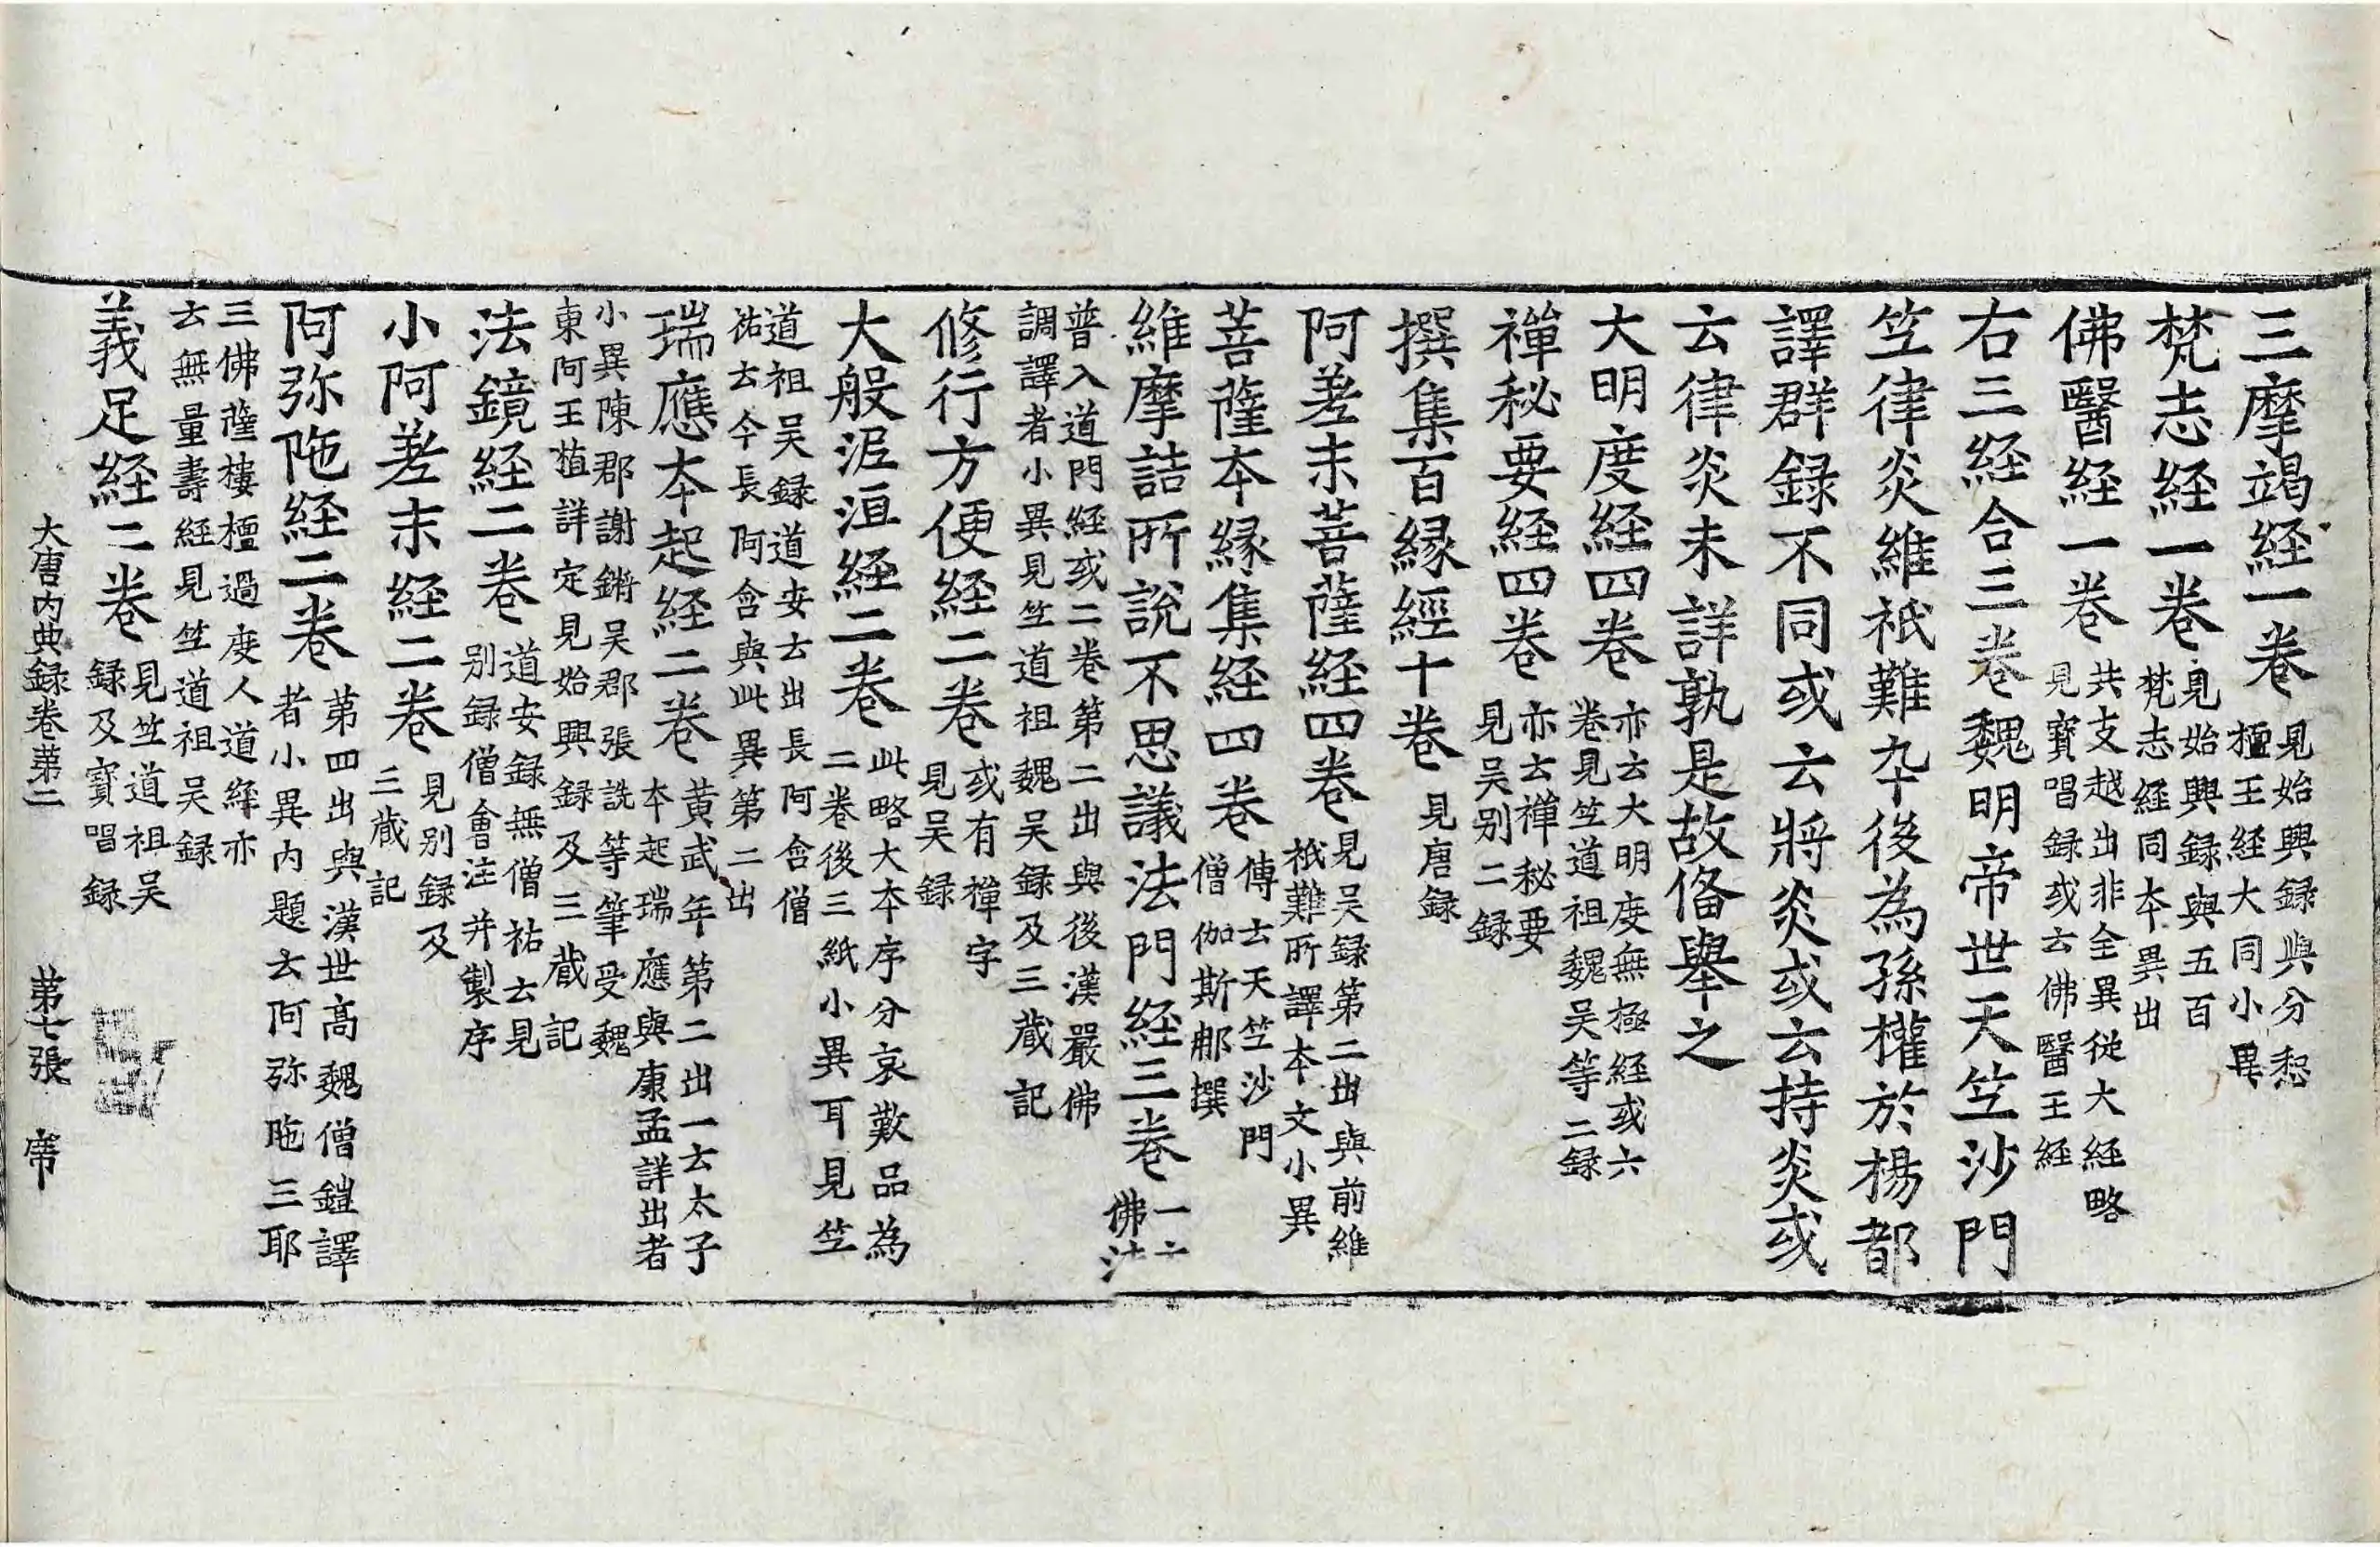 三摩竭経一卷見始興録與分惒檀王経大同小異
梵志経一卷見始興録與五百梵志経同夲異出
佛醫経一卷共支越出非全異従大経略見寳唱録或云佛醫王経
右三経合三卷魏明帝世天竺沙門
竺律炎維祇難卆後為孫權於楊都
譯群録不同或云將炎或云持炎或
云律炎未詳孰是故俻舉之
大明度経四卷亦云大明度無極経或六卷見竺道祖魏吴等二録
禪秘要経四卷亦云禪秘要見吴别二録
撰集百縁經十卷見唐録
阿差末菩薩経四卷見吴録第二出與前維祇難所譯夲文小異
菩薩夲縁集経四卷傳云天竺沙門僧伽斯䣂撰
維摩詰所説不思議法門経三卷一云佛法
普入道門経或二卷第二出與後漢嚴佛調譯者小異見竺道祖魏吴録及三蔵記
修行方便経二卷或有禪字見吴録
大般泥洹経二卷此略大夲序分哀歎品為二卷後三紙小異耳見竺
道祖吴録道安云出長阿含僧祐云今長阿含與此異第二出
瑞應夲起経二卷黃武年第二出一云太子夲起瑞應與康孟詳出者
小異陳郡謝鏘吴郡張詵等筆受魏東阿王植詳定見始興録及三蔵記
法鏡経二卷道安録無僧祐云見别録僧會注并製序
小阿差末経二卷見别録及三蔵記
阿弥陁経二卷苐四出與漢世髙魏僧鎧譯者小異内題云阿弥陁三耶
三佛薩樓檀過度人道経亦云無量壽経見竺道祖吴録
義足経二卷見竺道祖吴録及寳唱録
大唐内典録卷苐二 苐七張 帝